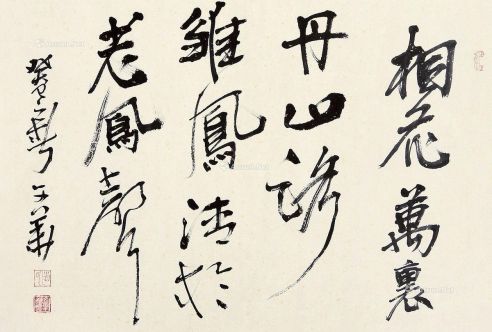 桐花萬裏
丹山路
雛鳳清於
老鳳聲
文華